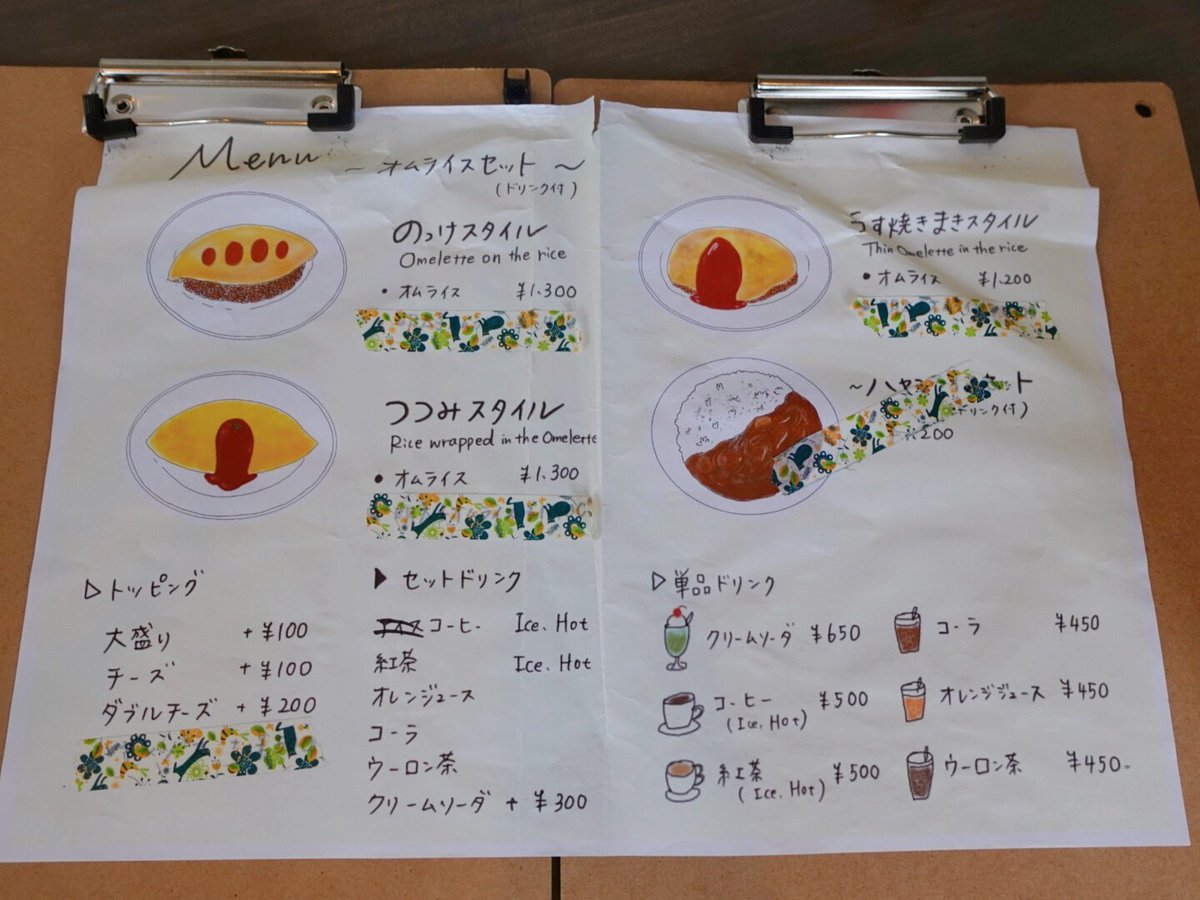 Menu
～ オムライスセット ～
(ドリンク付)
のっけスタイル
Omelette on the rice
• オムライス ¥1.300
つつみスタイル
Rice wrapped in the Omelette
• オムライス ¥1.300
▷トッピング
大盛り +¥100
チーズ +¥100
ダブルチーズ +¥200
▶ セットドリンク
コーヒー Ice、Hot
紅茶 Ice、Hot
オレンジュース
コーラ
ウーロン茶
クリームソーダ + ¥300
うす焼きまきスタイル
Thin Omelette in the rice
• オムライス ¥1.200
～ハヤ ット
ドリンク付)
200
▷単品ドリンク
クリームソーダ ¥650
コーヒー ¥500
(Ice、Hot)
紅茶 ¥500
(Ice、Hot)
コーラ ¥450
オレンジジュース ¥450
ウーロン茶 ¥450